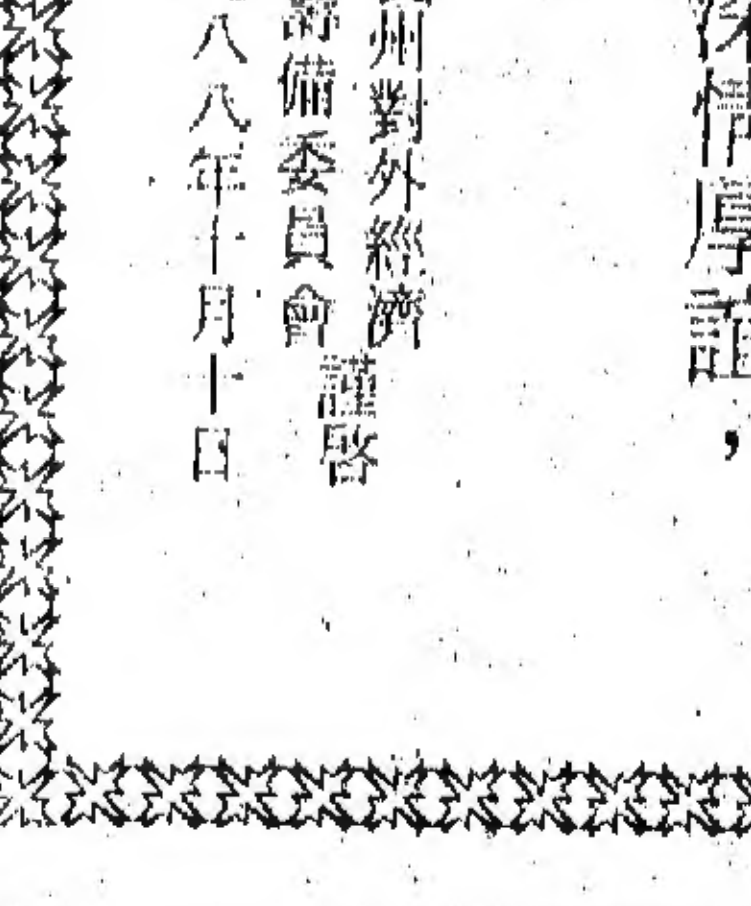 深情厚誼，
州對外經濟
籌備委員會
謹啓
八八年十月十日